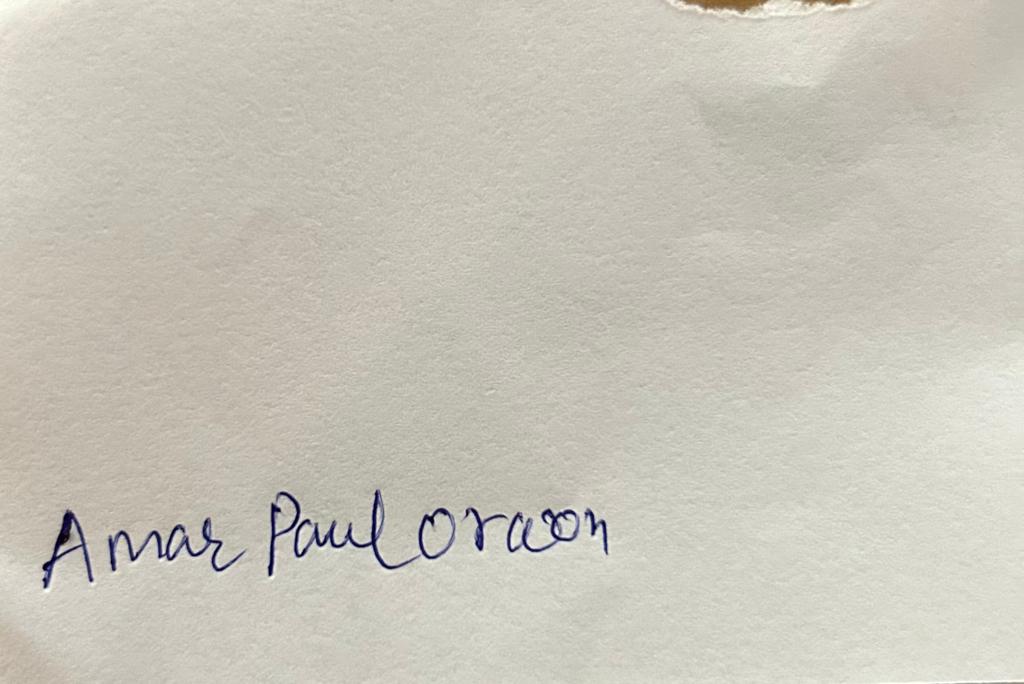 Amar Paul Oraon